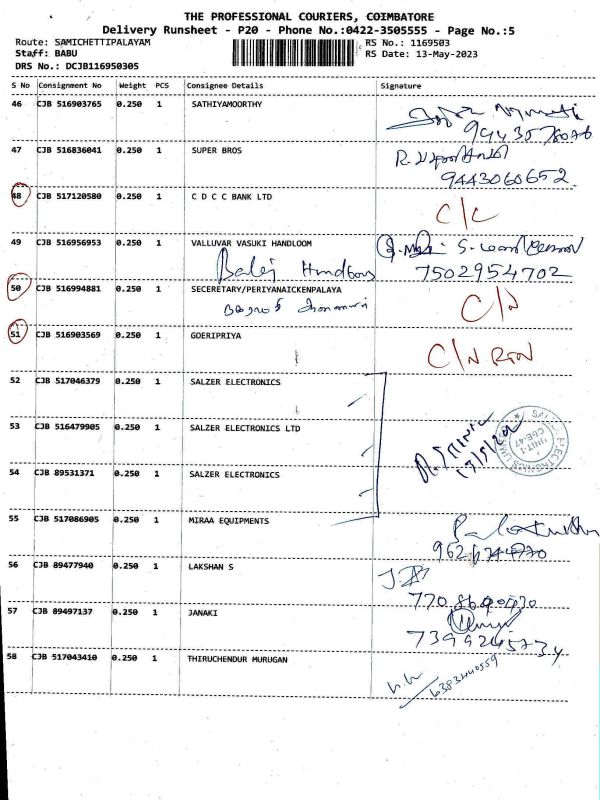 THE PROFESSIONAL COURIERS, COIMBATORE
Delivery Runsheet - P20 - Phone No.:0422-3505555 - Page No.:5
Route: SAMICHETTIPALAYAM
Staff: BABU
DRS No.: DCJB116950305
RS No.: 1169503
RS Date: 13-May-2023
S No Consignment No Weight PCS Consignee Details Signature
46 CJB 516903765 0.250 1 SATHIYAMOORTHY
47 CJB 516836041 0.250 1 SUPER BROS
9443060652.
48 CJB 517120580 0.250 1 C D C C BANK LTD
C/L
49 CJB 516956953 0.250 1 VALLUVAR VASUKI HANDLOOM
Balaji Handloom
7502954702
50 CJB 516994881 0.250 1 SECERETARY/PERIYANAICKENPALAYA
C/N
51 CJB 516903569 0.250 1 GOERIPRIYA
C/N RTN
52 CJB 517046379 0.250 1 SALZER ELECTRONICS
53 CJB 516479905 0.250 1 SALZER ELECTRONICS LTD
54 CJB 89531371 0.250 1 SALZER ELECTRONICS
UNIT-1
CBE-47
55 CJB 517086905 0.250 1 MIRAA EQUIPMENTS
56 CJB 89477940 0.250 1 LAKSHAN S
57 CJB 89497137 0.250 1 JANAKI
58 CJB 517043410 0.250 1 THIRUCHENDUR MURUGAN